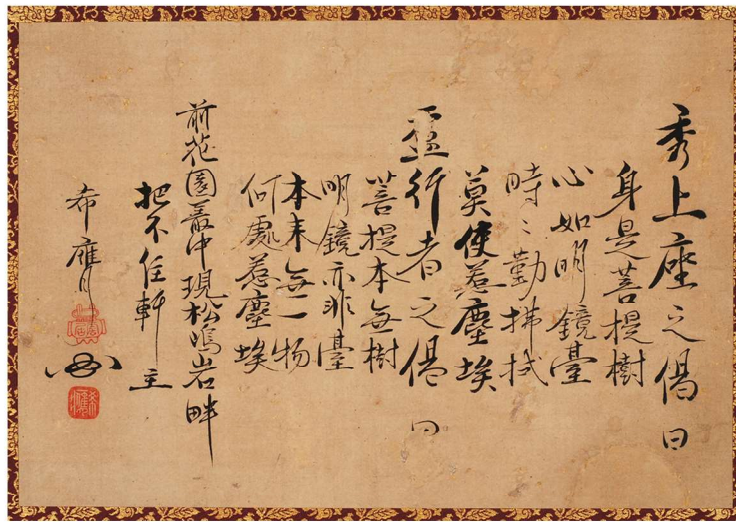 秀上座之偈曰
身是菩提樹
心如明鏡臺
時〻勤拂拭
莫使惹塵埃
盧行者之偈曰
菩提本無樹
明鏡亦非臺
本来無一物
何處惹塵埃
前花園叢中現松嶋岩畔
把不住軒主
希膺